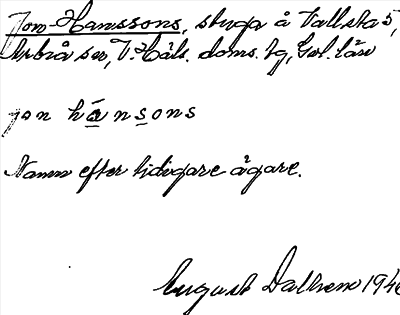 Jon Hanssons, stuga å Vallsta 5,
Arbrå sn, V. Häls. doms. hg, Gvl. län
jon hansons
Namn efter tidigare ägare.
August Dalhem 194